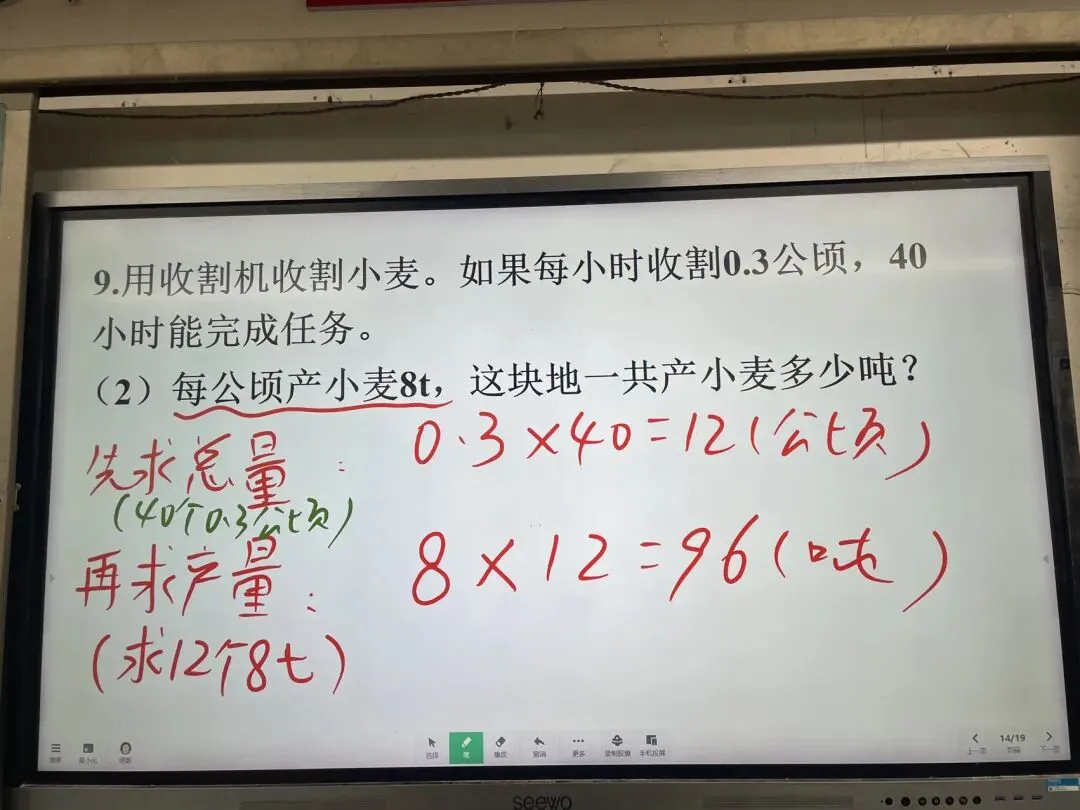 9.用收割机收割小麦。如果每小时收割0.3公顷，40
小时能完成任务。
（2）每公顷产小麦8t，这块地一共产小麦多少吨？
先求总量：
0.3×40=12(公顷)
(40个0.3公顷)
再求产量：
8×12=96(吨)
(求12个8t)
选择
笔
橡皮
撤消
更多
录制胶囊
手机投屏
上一页
14/19
页码
下一页
seewo